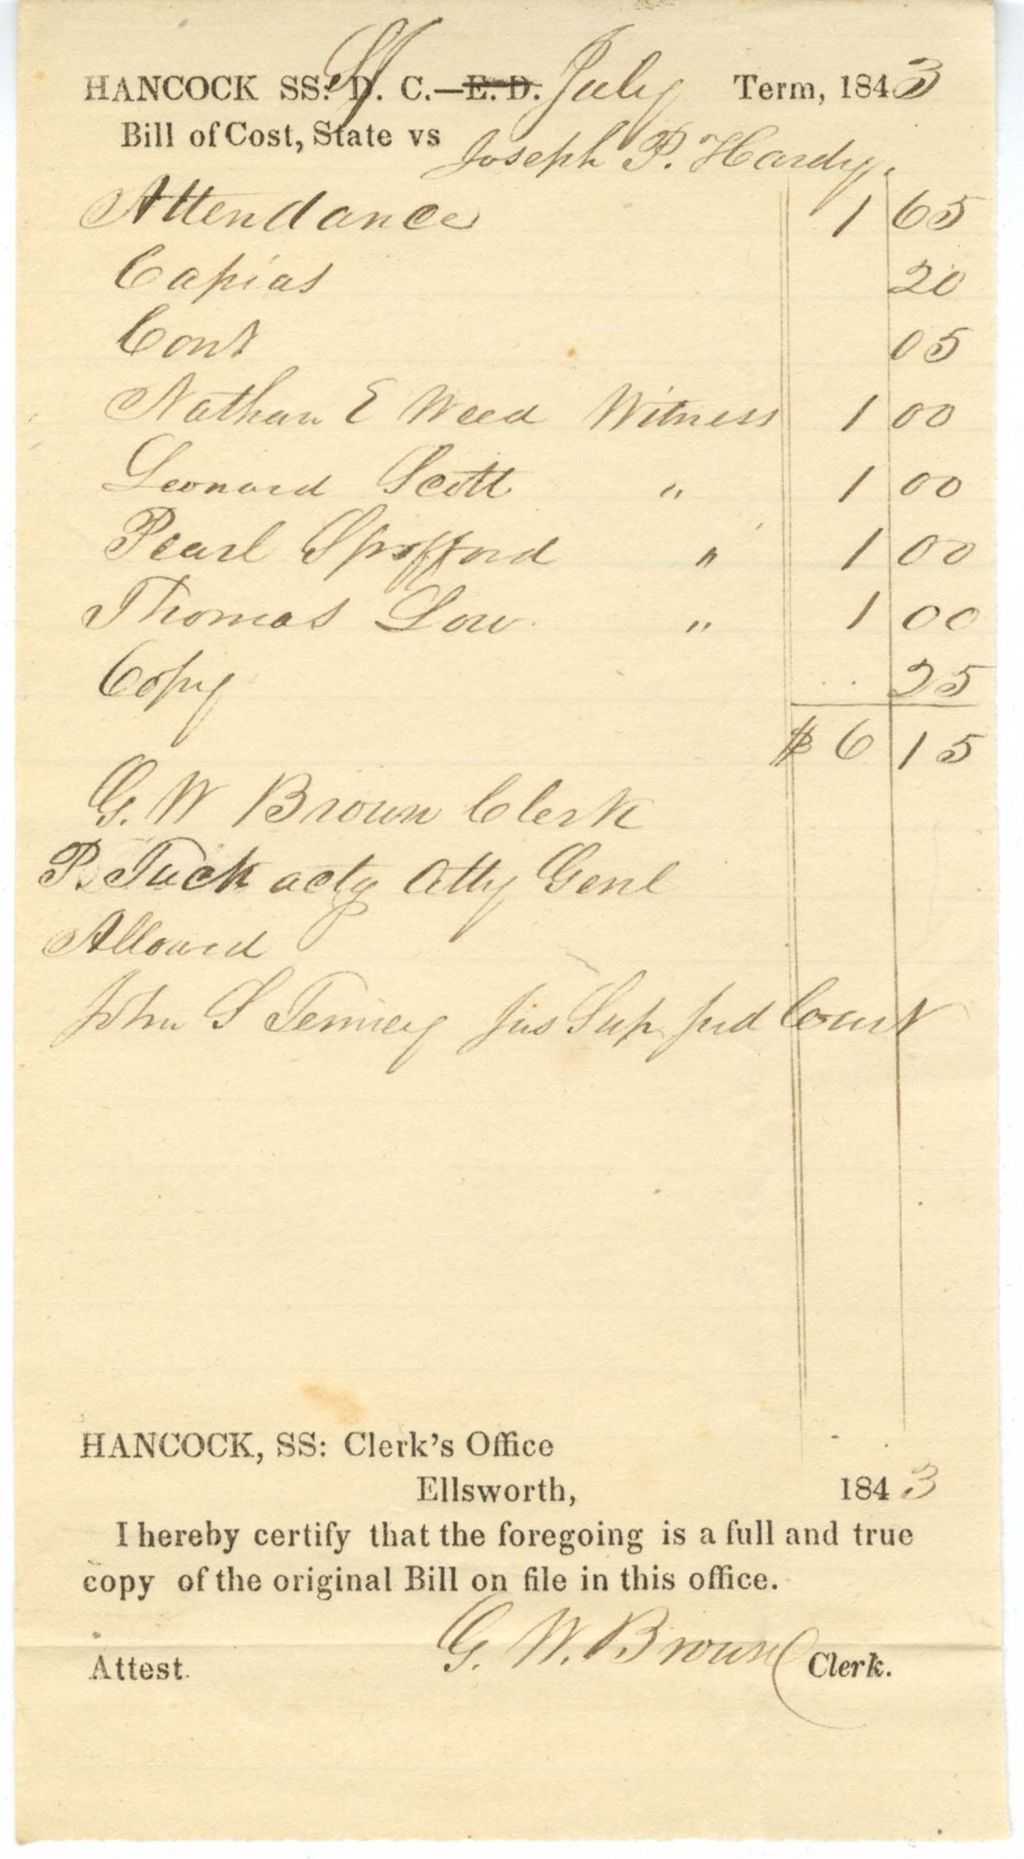 HANCOCK SS: S J. C.—E. D. July Term, 1843
Bill of Cost, State vs Joseph P. Hardy.
Attendance 1 65
Capias 20
Cont 05
Nathan E Weed Witness 1 00
Leonard Scott " 1 00
Pearl Spofford " 1 00
Thomas Low " 1 00
Copy 25
$ 6 15
G. W Brown Clerk
P. Tuck actg Atty Genl
Allowed
John S Tenney Jus Sup Jud Court
HANCOCK, SS: Clerk's Office
Ellsworth, 1843
I hereby certify that the foregoing is a full and true
copy of the original Bill on file in this office.
Attest. G. W. Brown Clerk.